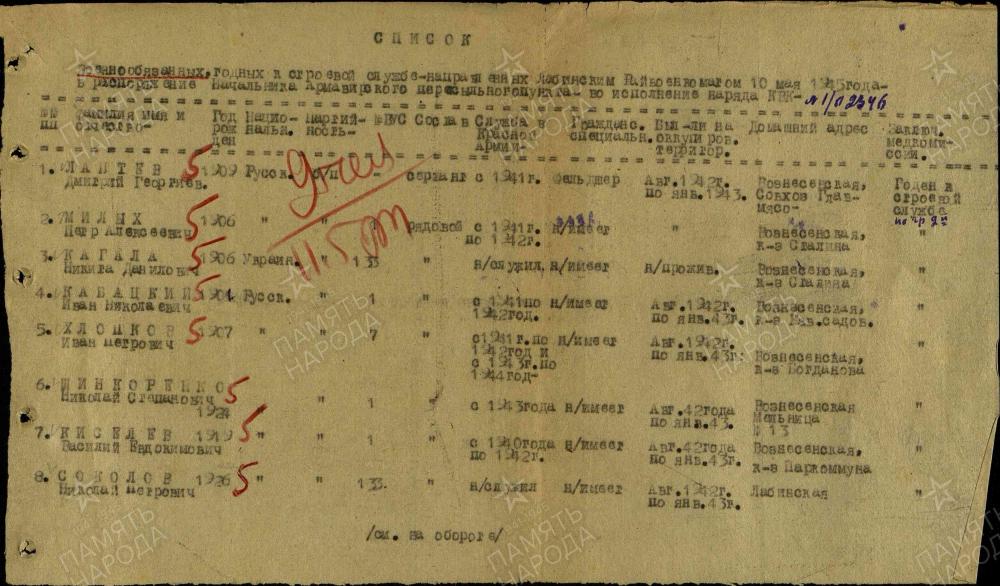 СПИСОК
Военнообязанных, годных к строевой службе-направленных Лабинским Райвоенкоматом 10 мая 1945года-
в распоряжение Начальника Армавирского пересыльногопункта- во исполнение наряда КВК- №1/02346
№№ Фамилия имя и Год Нацио- Партий- ВУС Состав Служба в Гражданс. Был-ли на Домашний адрес Заключ.
пп отчество- рож нальн. ность- Красной специальн. оккупиров. медкоми-
ден Армии- территор. ссии.
1. ЛАПТЕВ 5 1909 Русск. б/п - сержант с 1941г. Фельдшер Авг.1942г. Вознесенская, Годен к
Дмитрий Георгиев. по янв.1943. Совхоз Глав- строевой
мясо- службе
2. МИЛЫХ 5 1906 " " рядовой с 1941г. н/имеет " Вознесенская, "
Петр Алексеевич по 1942г. к-з Сталина
3. КАГАЛА 5 1906 Украин. " 133 " н/служил, н/имеет н/прожив. Вознесенская, "
Никита Данилович к-з Сталина
4. КАБАЦКИЙ 5 1904 Русск. " 1 " с 1941по н/имеет Авг.1942г. Вознесенская, "
Иван Николаевич 1942год. по янв.43г. к-з Кав.садов.
5. ХЛОПКОВ 5 1907 " " 7 " с1941г.по н/имеет Авг.1942г. "
Иван Петрович 1942год и по янв.43г. Вознесенская,
с 1943г.по к-з Богданова
1944год-
6. ШИНКОРЕНКО 5
Николай Степанович " 1 " с 1943года н/имеет Авг.42года Вознесенская "
1924 по янв.43. Мельница
№ 13
7. КИСЕЛЕВ 1919 5 " " 1 " с 1940года н/имеет Авг.42года Вознесенская, "
Василий Евдокимович по 1942г. по янв.43г. к-з Паркоммуна
8. СОКОЛОВ 1926 5 " " 133. " н/служил н/имеет Авг.1942г. Лабинская "
Николай Петрович по янв.43г.
/см. на обороте/
11.5
ПАМЯТЬ НАРОДА